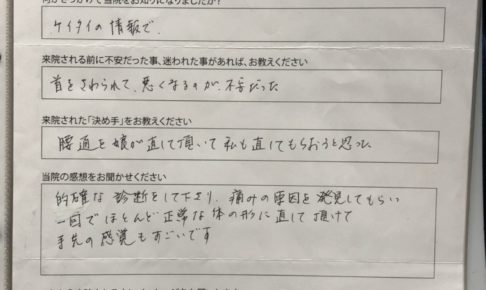 何がきっかけで当院をお知りになりましたか?
ケイタイの情報で.
来院される前に不安だった事、迷われた事があれば、お教えください
首をさわられて、悪くなるのが、不安だった
来院された「決め手」をお教えください
腰通を娘が直して頂いて私も直してもらおうと思った
当院の感想をお聞かせください
的確な診断をして下さり、痛みの原因を発見してもらい
一回でほとんど正常な体の形に直して頂けて
手先の感覚もすごいです